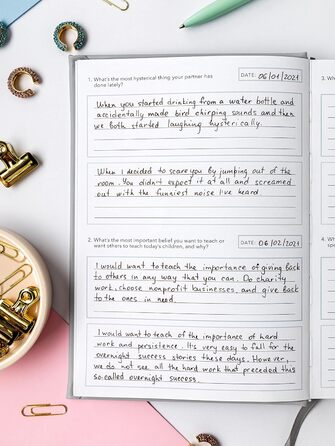 1. What's the most hysterical thing your partner has
done lately?
DATE: 06/01/2021
When you started drinking from a water bottle and
accidentally made bird chirping sounds and then
we both started laughing hysterically.
When I decided to scare you by jumping out of the
room. You didn't expect it at all and screamed
out with the funniest noise I've heard
2. What's the most important belief you want to teach or
want others to teach today's children, and why?
DATE: 06/02/2021
I would want to teach the importance of giving back
to others in any way that you can. Do charity
work, choose nonprofit businesses, and give back
to the ones in need.
I would want to teach of the importance of hard
work and persistence. It's very easy to fall for the
overnight success stories these days. However,
we do not see all the hard work that preceded this
so-called overnight success.
3. Wha
4. W